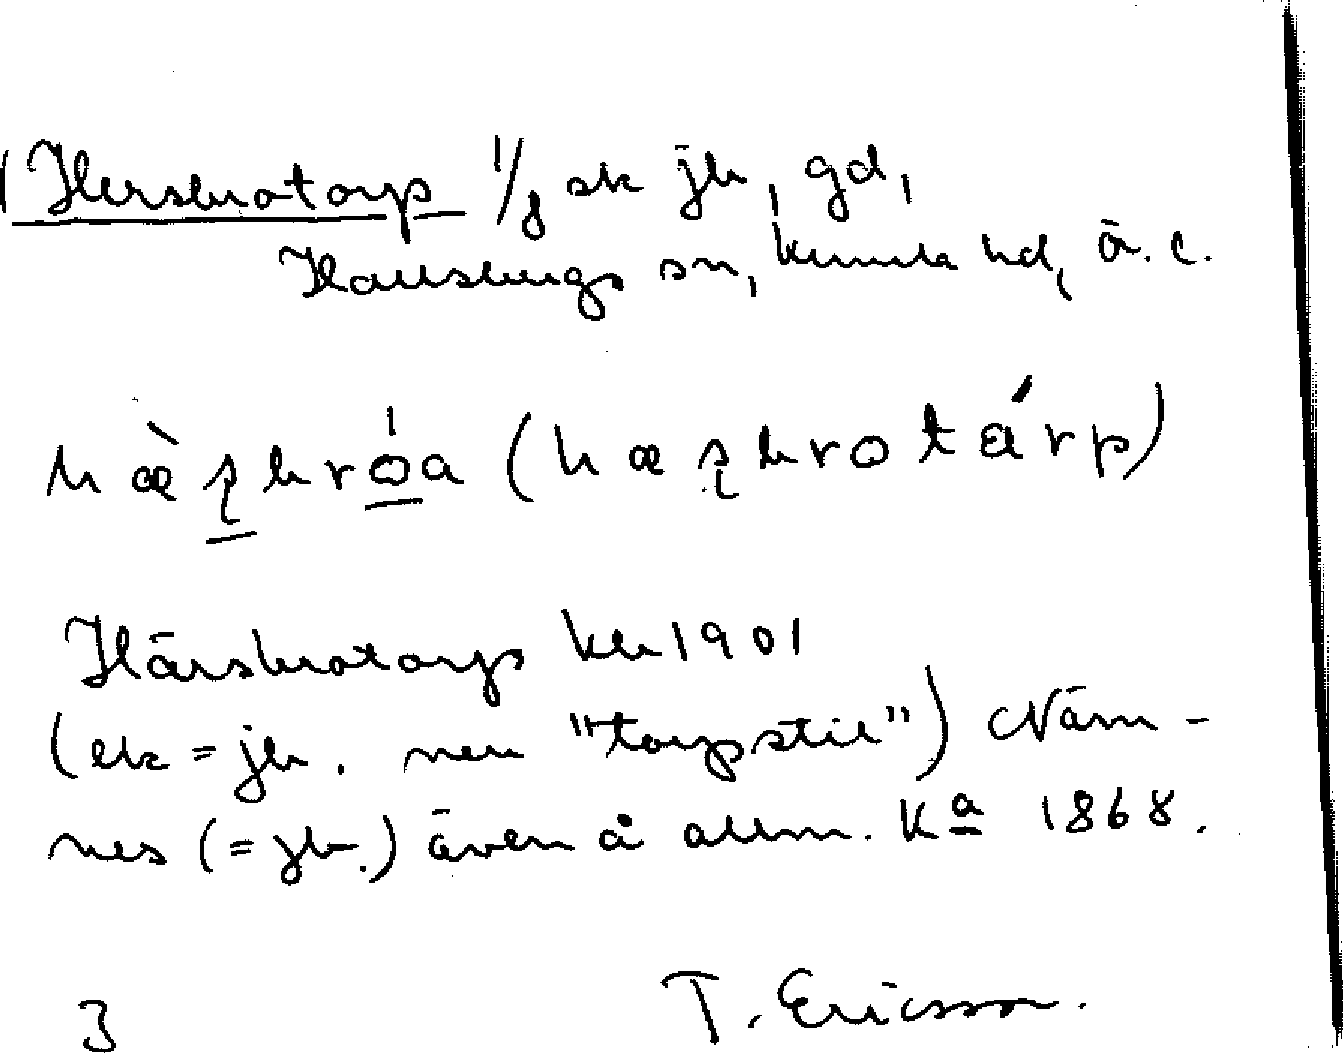 Hersbrotorp 1/8 sk jb, gd,
Hallsbergs sn, Kumla hd, Ö. l.
hæ̀ʂbróa (hæʂbrotárp)
Härsbrotorp kb 1901
(ek = jb. men "torpstäl") Näm-
nes (= jb.) även å allm. Ka 1868.
3 T. Ericsson.